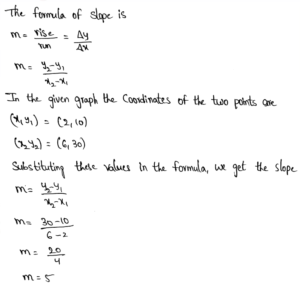 The formula of slope is
m = rise/run = Δy/Δx
m = y₂-y₁/x₂-x₁
In the given graph the Coordinates of the two points are
(x₁y₁) = (2,10)
(x₂y₂) = (6,30)
Substituting these values in the formula, we get the slope
m = y₂-y₁/x₂-x₁
m = 30-10/6-2
m = 20/4
m = 5